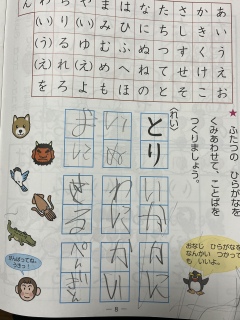 あいうえお
かきくけこ
さしすせそ
たちつてと
なにぬねの
はひふへほ
まみむめも
や(い)ゆ(え)よ
らりるれろ
わ(い)(う)(え)を
ん
★ ふたつの ひらがなを
くみあわせて、ことばを
つくりましょう。
〈れい〉
とり
いか
いぬ
わに
かい
さる
ぺんぎん
おなじ ひらがなを
なんかい つかって
も いいよ。
がんばってね。
うきっ!
8